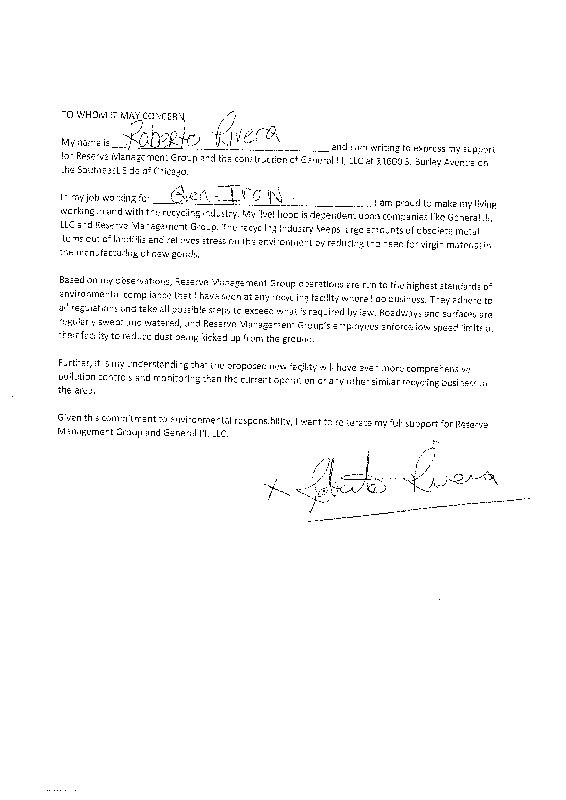 TO WHOM IT MAY CONCERN,
My name is Roberto Rivera and I am writing to express my support
for Reserve Management Group and the construction of General III, LLC at 11600 S. Burley Avenue on
the Southeast Side of Chicago.
In my job working for Gen-Iron, I am proud to make my living
working in and with the recycling industry. My livelihood is dependent upon companies like General III,
LLC and Reserve Management Group. The recycling industry keeps large amounts of obsolete metal
items out of landfills and relieves stress on the environment by reducing the need for virgin material in
the manufacturing of new goods.
Based on my observations, Reserve Management Group operations are run to the highest standards of
environmental compliance that I have seen at any recycling facility where I do business. They adhere to
all regulations and take all possible steps to exceed what is required by law. Roadways and surfaces are
regularly swept and watered, and Reserve Management Group's employees enforce low speed limits at
their facility to reduce dust being kicked up from the ground.
Further, it is my understanding that the proposed new facility will have even more comprehensive
pollution controls and monitoring than the current operation or any other similar recycling business in
the area.
Given this commitment to environmental responsibility, I want to reiterate my full support for Reserve
Management Group and General III, LLC.
x Roberto Rivera